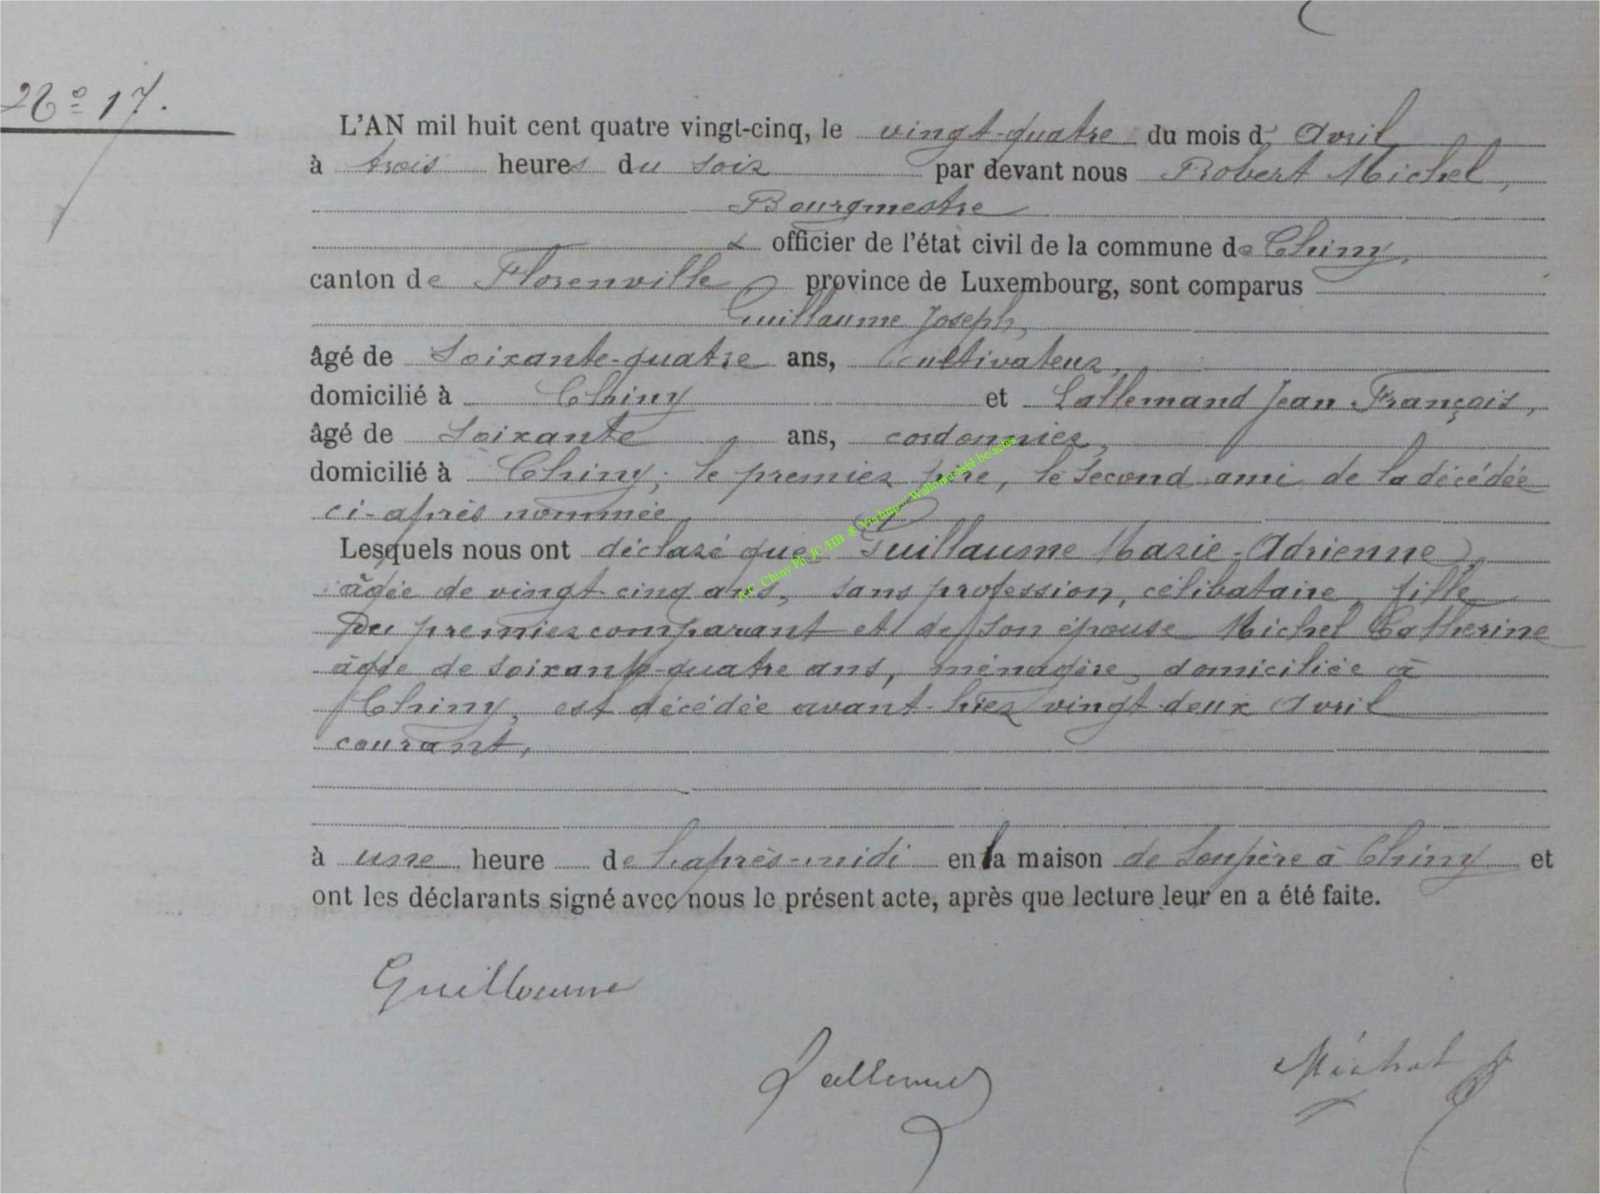 N° 17.
L'AN mil huit cent quatre vingt-cinq, le vingt-quatre du mois d' Avril
à trois heures du soir par devant nous Robert Michel,
Bourgmestre
& officier de l'état civil de la commune de Chiny,
canton de Florenville province de Luxembourg, sont comparus
Guillaume Joseph,
âgé de Soixante-quatre ans, Cultivateur,
domicilié à Chiny et Lallemand Jean François,
âgé de Soixante ans, cordonnier,
domicilié à Chiny, le premier père, le second ami de la décédée
ci-après nommée
Lesquels nous ont déclaré que Guillaume Marie-Adrienne,
âgée de vingt-cinq ans, sans profession, célibataire, fille
Du premier comparant et de son épouse Michel Catherine
âgée de soixante-quatre ans, ménagère, domiciliée à
Chiny, est décédée avant-hier vingt-deux Avril
courant,
à une heure de l'après-midi en la maison de son père à Chiny et
ont les déclarants signé avec nous le présent acte, après que lecture leur en a été faite.
Guillaume